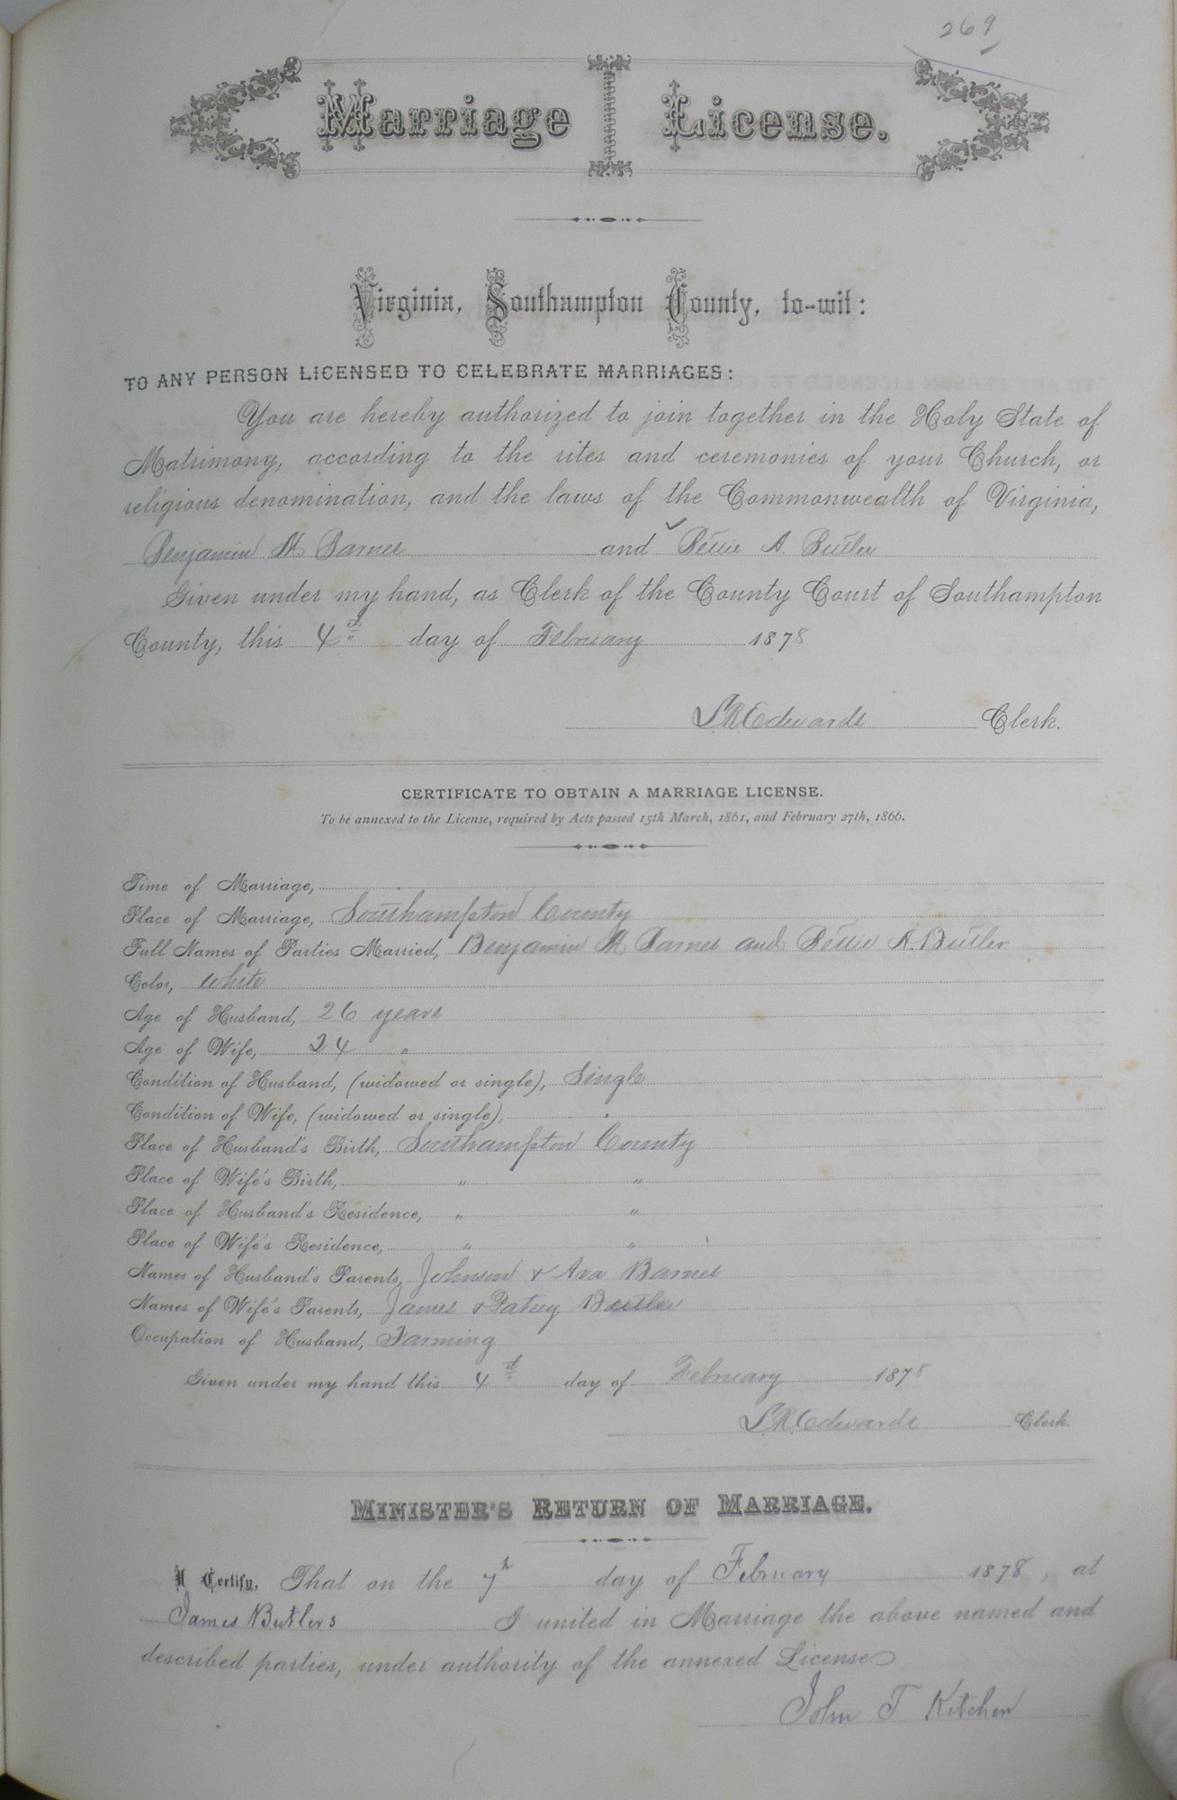 269
Marriage License.
Virginia, Southampton County, to-wit:
TO ANY PERSON LICENSED TO CELEBRATE MARRIAGES:
You are hereby authorized to join together in the Holy State of
Matrimony, according to the rites and ceremonies of your Church, or
religious denomination, and the laws of the Commonwealth of Virginia,
Benjamin H Barnes and Bettie A Butler
Given under my hand, as Clerk of the County Court of Southampton
County, this 4th day of February 1878
L R Edwards Clerk.
CERTIFICATE TO OBTAIN A MARRIAGE LICENSE.
To be annexed to the License, required by Acts passed 15th March, 1861, and February 27th, 1866.
Time of Marriage,
Place of Marriage, Southampton County
Full Names of Parties Married, Benjamin H Barnes and Bettie A. Butler
Color, white
Age of Husband, 26 years
Age of Wife, 24 "
Condition of Husband, (widowed or single), Single
Condition of Wife, (widowed or single), "
Place of Husband's Birth, Southampton County
Place of Wife's Birth, " "
Place of Husband's Residence, " "
Place of Wife's Residence, " "
Names of Husband's Parents, Johnson & Ava Barnes
Names of Wife's Parents, James & Patsey Butler
Occupation of Husband, Farming
Given under my hand this 4th day of February 1878
L R Edwards Clerk.
MINISTER'S RETURN OF MARRIAGE.
I Certify, That on the 7th day of February 1878, at
James Butlers I united in Marriage the above named and
described parties, under authority of the annexed License
John T Kitchen